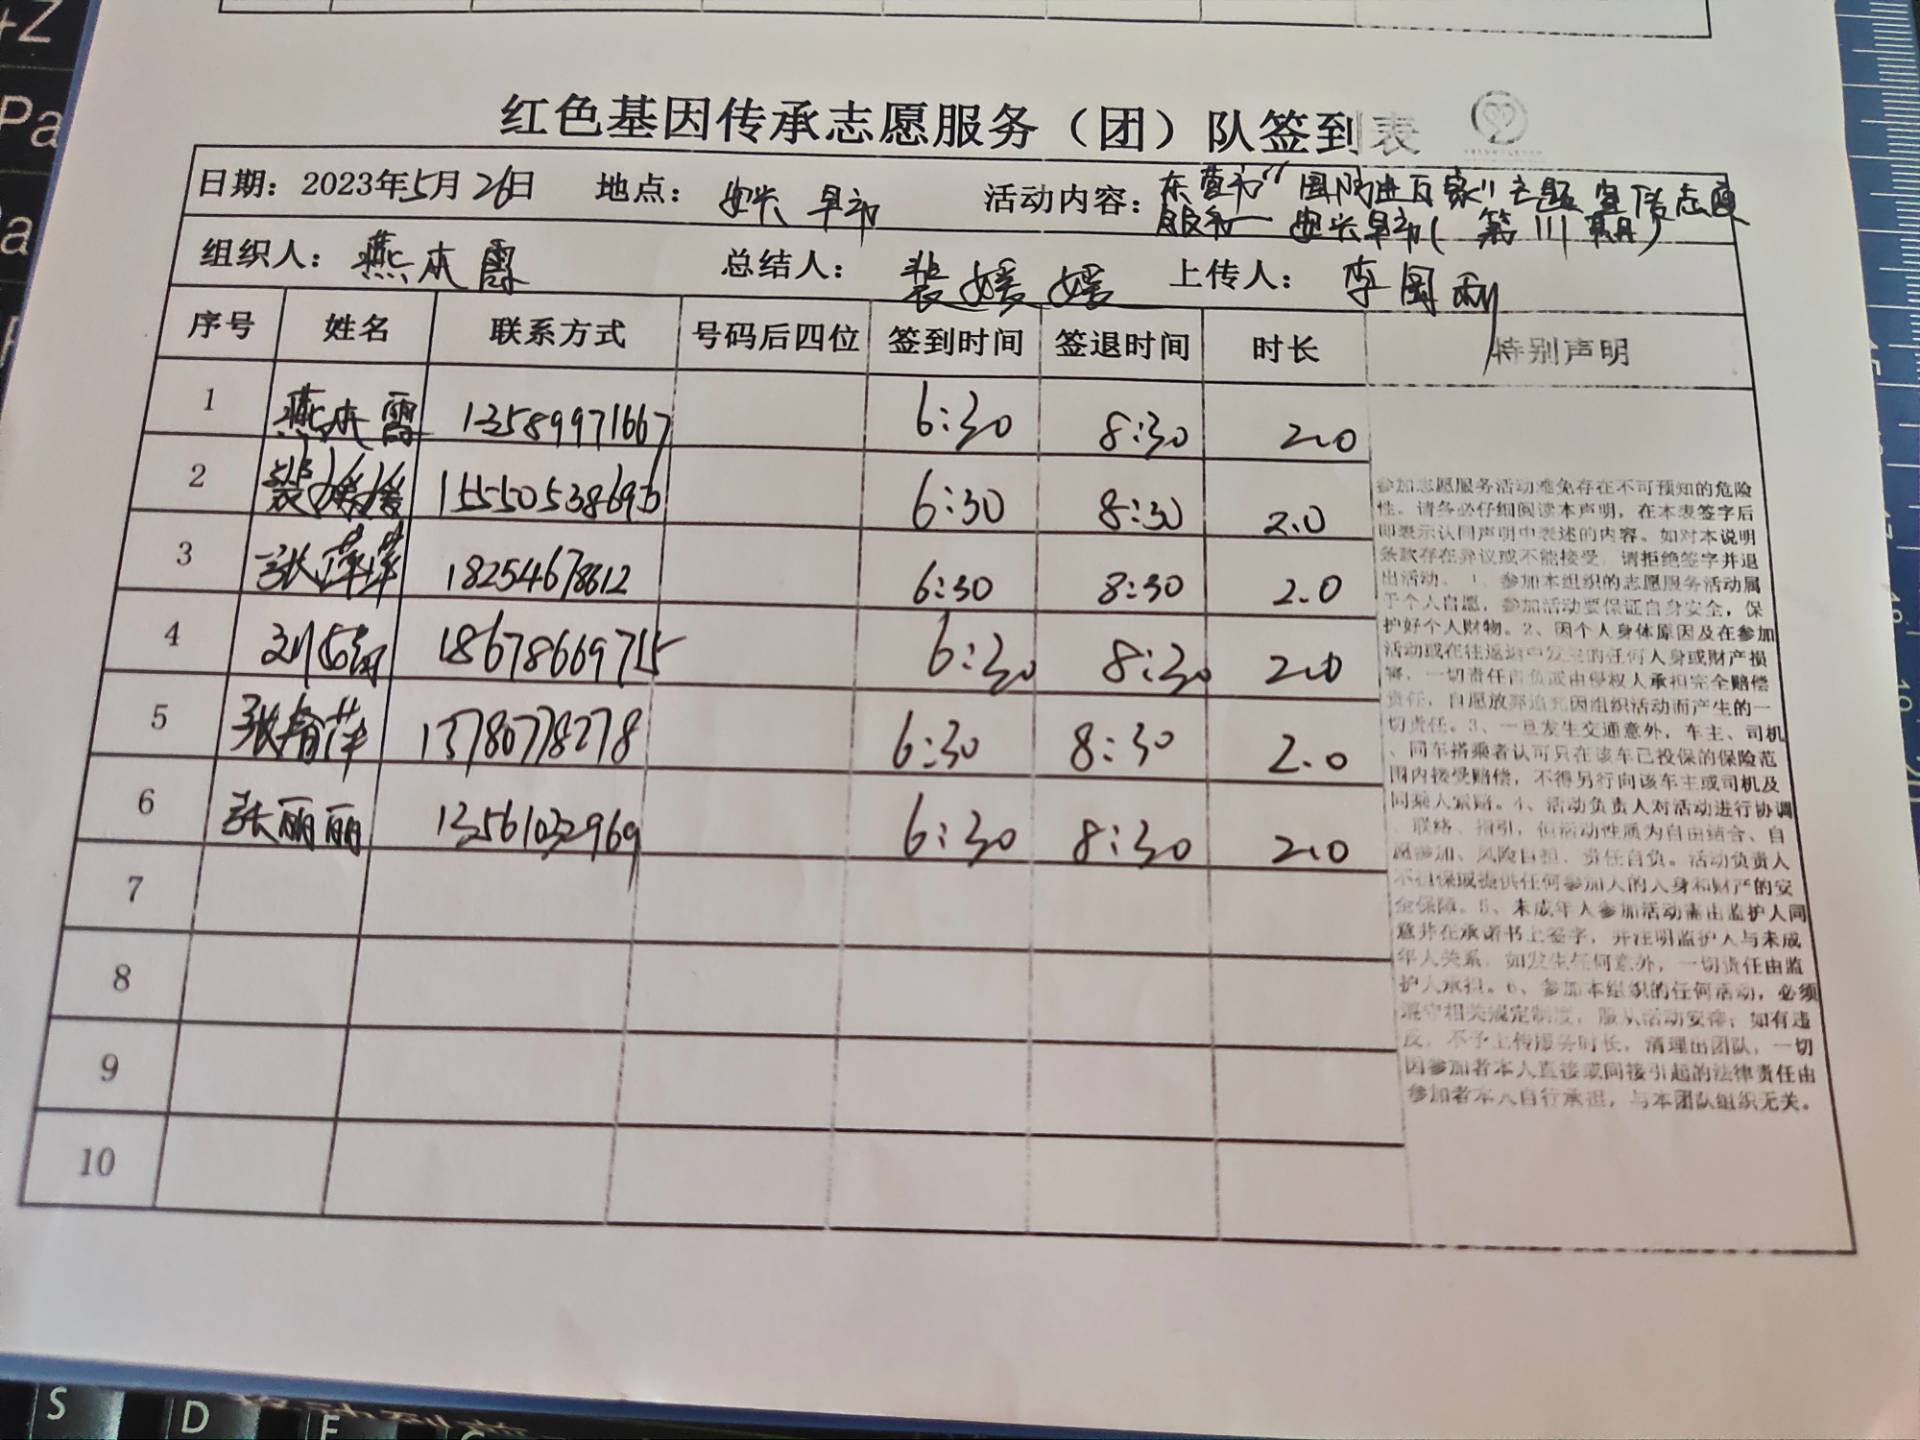 红色基因传承志愿服务（团）队签到表
日期：2023年5月26日 地点：安兴早市 活动内容：东营市"国防进万家"主题宣传志愿
服务—安兴早市(第111期)
组织人：燕本霞 总结人：裴媛媛 上传人：李国利
序号 姓名 联系方式 号码后四位 签到时间 签退时间 时长 特别声明
1 燕本霞 13589971667 6:30 8:30 2.0
2 裴媛媛 6:30 8:30 2.0
3 张萍萍 18254678612 6:30 8:30 2.0
4 18678669715 6:30 8:30 2.0
5 张春萍 13780778278 6:30 8:30 2.0
6 张丽丽 13561032969 6:30 8:30 2.0
7
8
9
10
参加志愿服务活动难免存在不可预知的危险
性。请务必仔细阅读本声明，在本表签字后
即表示认同声明中表述的内容。如对本说明
条款存在异议或不能接受，请拒绝签字并退
出活动。1、参加本组织的志愿服务活动属
于个人自愿，参加活动要保证自身安全，保
护好个人财物。2、因个人身体原因及在参加
活动或在往返途中发生的任何人身或财产损
害，一切责任自负或由侵权人承担完全赔偿
责任，自愿放弃追究因组织活动而产生的一
切责任。3、一旦发生交通意外，车主、司机
、同车搭乘者认可只在该车已投保的保险范
围内接受赔偿，不得另行向该车主或司机及
同乘人索赔。4、活动负责人对活动进行协调
、联络、指引，但活动性质为自由结合、自
愿参加、风险自担、责任自负。活动负责人
不担保或提供任何参加人的人身和财产的安
全保障。5、未成年人参加活动需由监护人同
意并在承诺书上签字，并注明监护人与未成
年人关系，如发生任何意外，一切责任由监
护人承担。6、参加本组织的任何活动，必须
遵守相关规定制度，服从活动安排；如有违
反，不予上传服务时长，清理出团队，一切
因参加者本人直接或间接引起的法律责任由
参加者本人自行承担，与本团队组织无关。
+Z
Pa
a
S
D
F